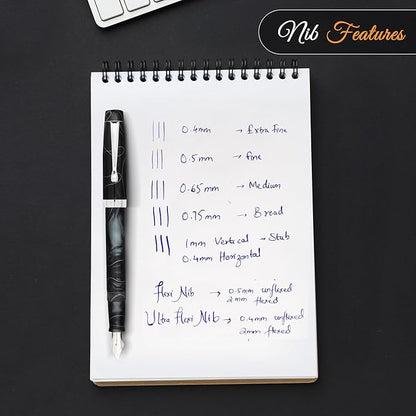 Nib Features
0.4mm → Extra fine
0.5mm → fine
0.65mm → Medium
0.75mm → Broad
1mm Vertical → Stub
0.4mm Horizontal
Flexi Nib → 0.5mm unflexed
2mm flexed
Ultra Flexi Nib → 0.4mm unflexed
2mm flexed